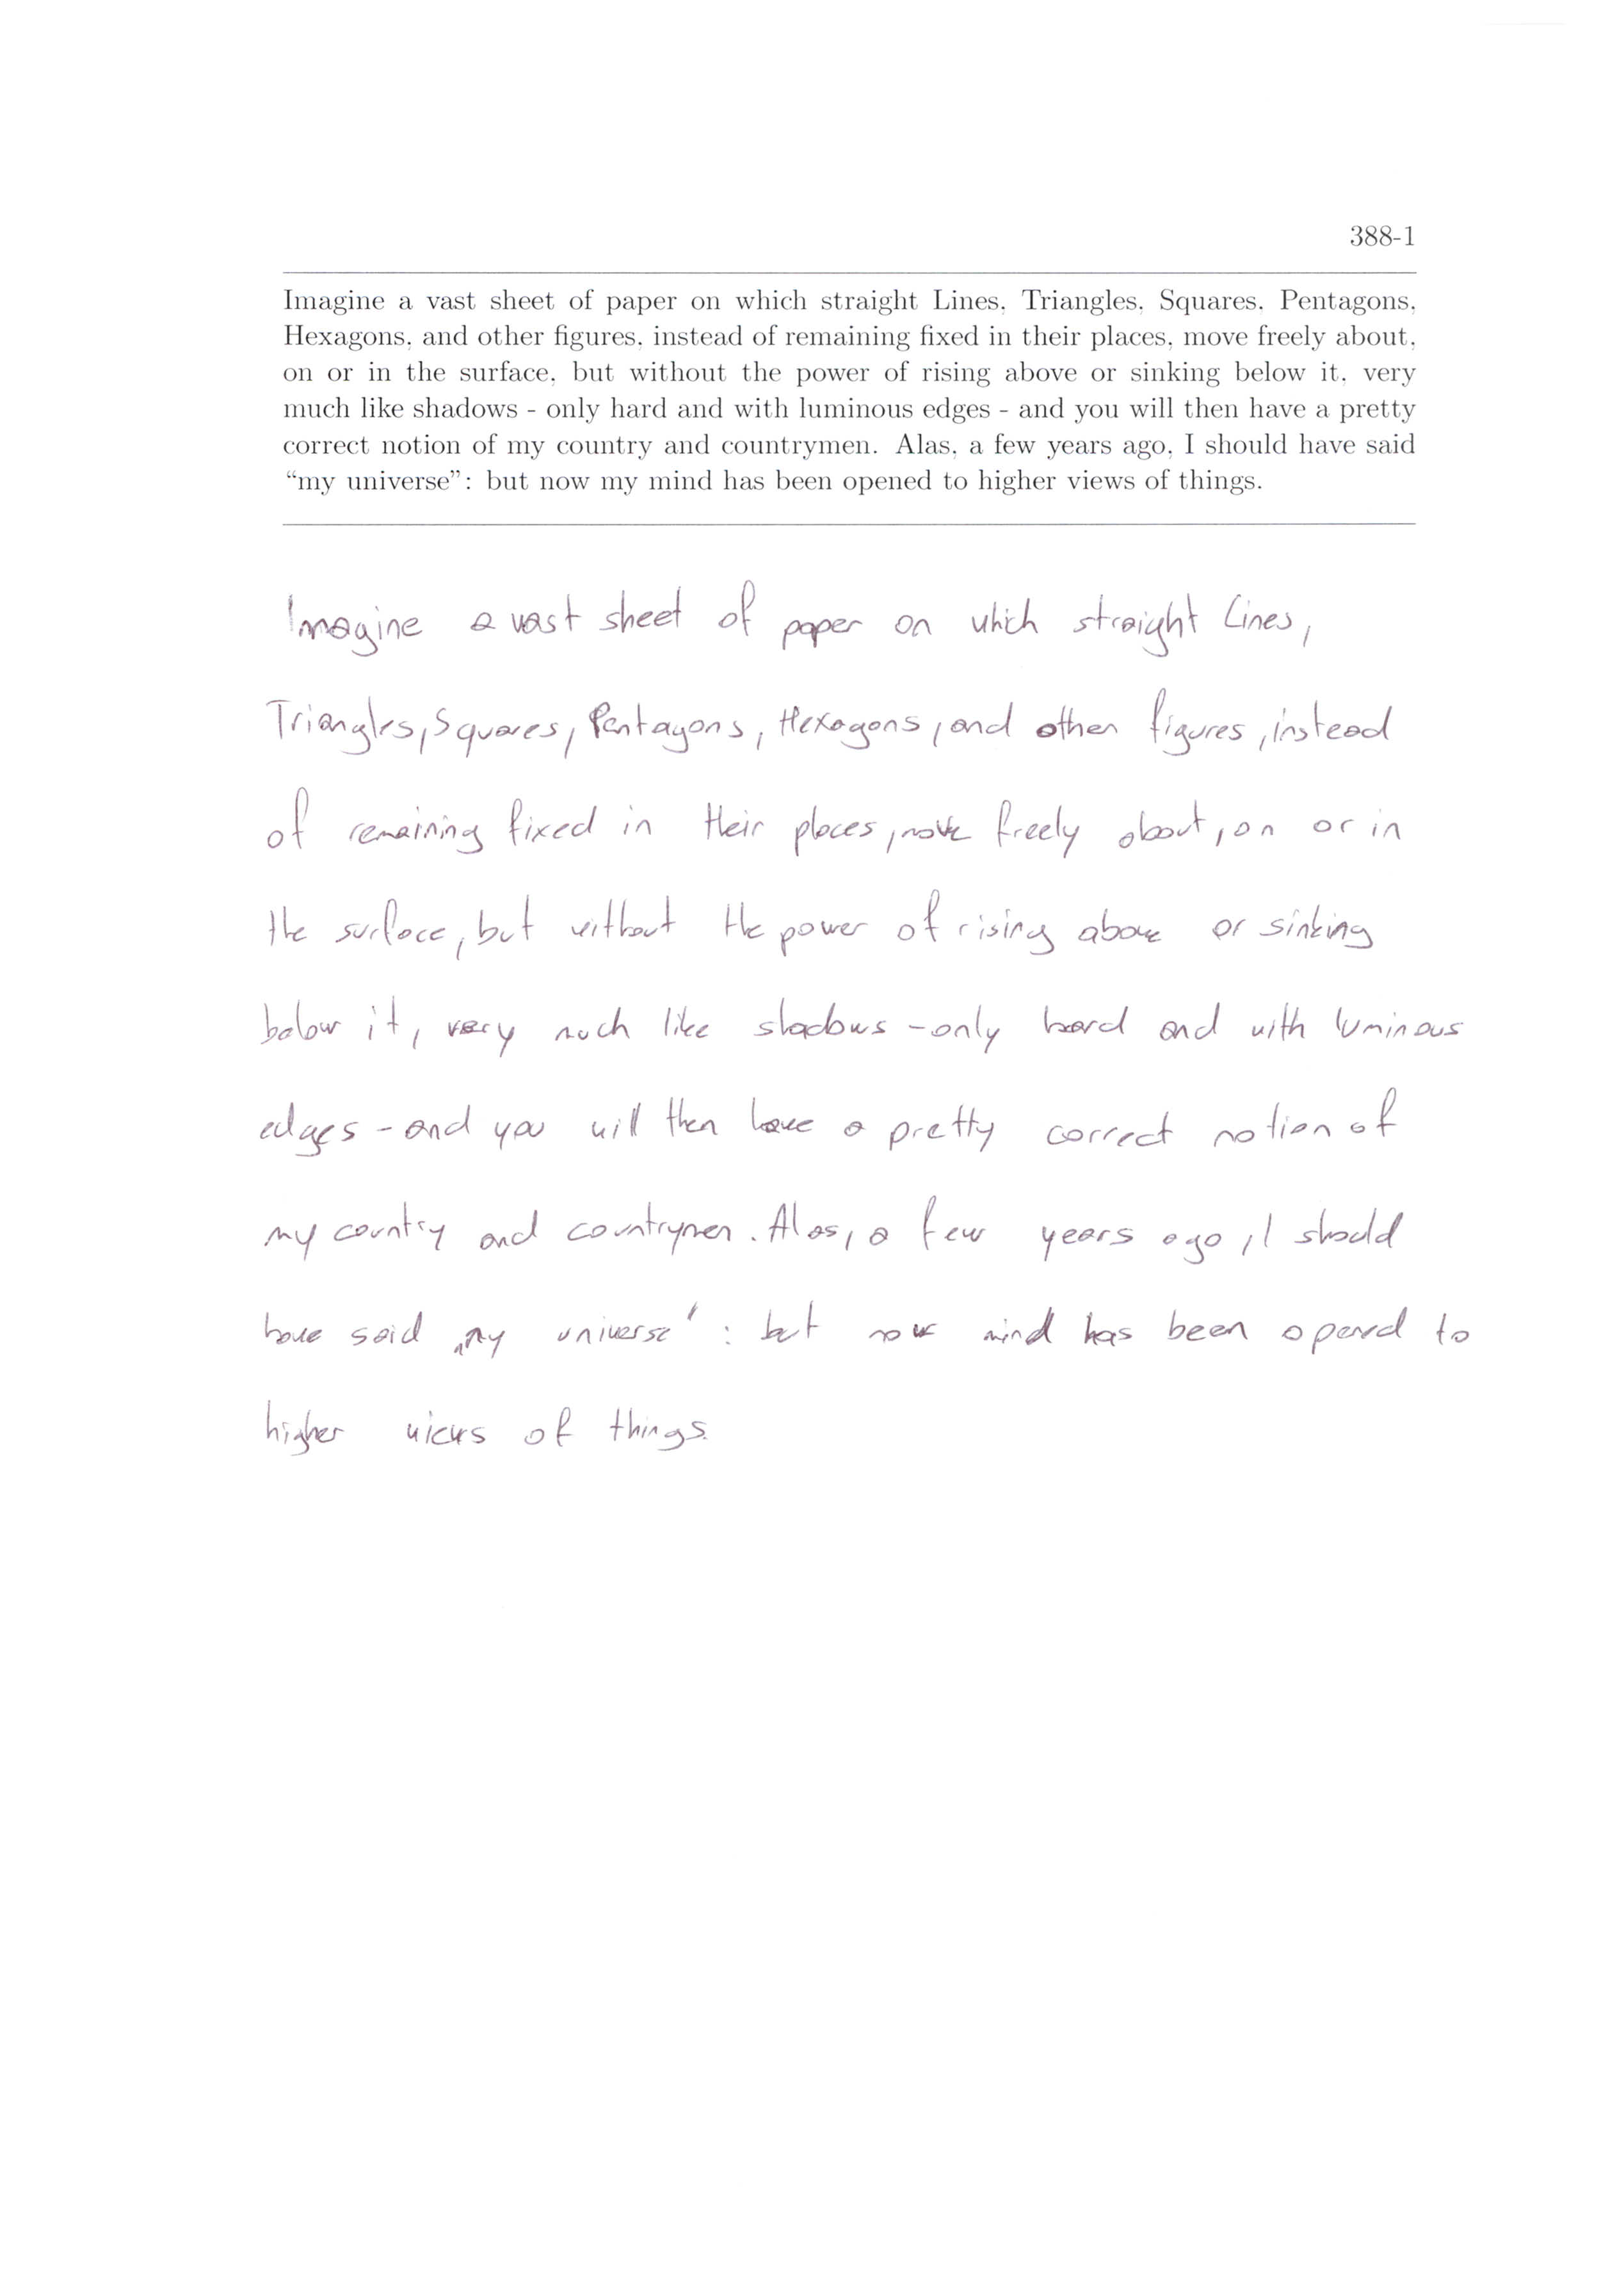 388-1
Imagine a vast sheet of paper on which straight Lines, Triangles, Squares, Pentagons,
Hexagons, and other figures, instead of remaining fixed in their places, move freely about,
on or in the surface, but without the power of rising above or sinking below it, very
much like shadows - only hard and with luminous edges - and you will then have a pretty
correct notion of my country and countrymen. Alas, a few years ago, I should have said
“my universe”: but now my mind has been opened to higher views of things.
Imagine a vast sheet of paper on which straight Lines,
Triangles, Squares, Pentagons, Hexagons, and other figures, instead
of remaining fixed in their places, move freely about, on or in
the surface, but without the power of rising above or sinking
below it, very much like shadows - only hard and with luminous
edges - and you will then have a pretty correct notion of
my country and countrymen. Alas, a few years ago, I should
have said „my universe": but now mind has been opened to
higher views of things.